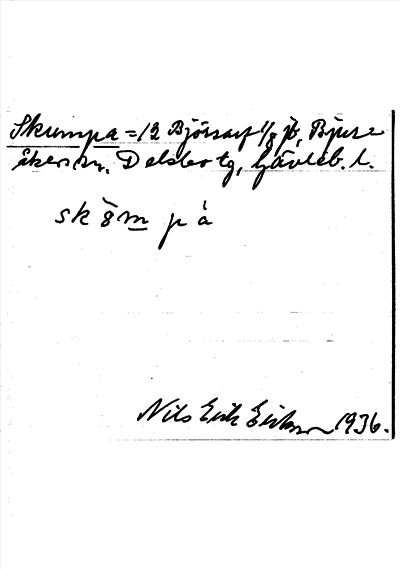 Skumpa = 12 Björsarf 1/8 jb, Bjurs=
åkers sn, Delsbo tg, Gävleb. l.
sk ŏ̀m p á
Nils Erik Erikson 1936.